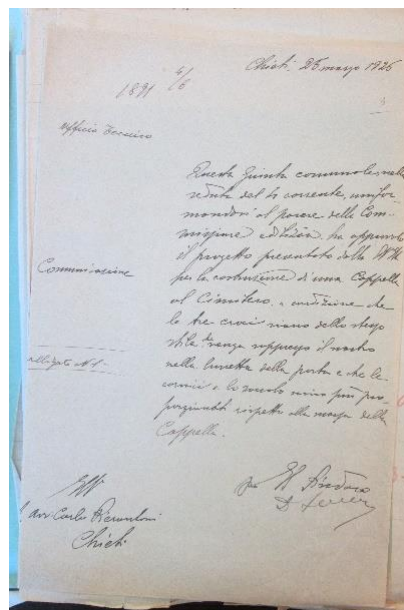 Chieti, 25 marzo 1926
1891 4/6
Ufficio Tecnico
Questa Giunta comunale, nella
seduta del corrente, unifor-
mandosi al parere della Com-
missione edilizia, ha approvato
il progetto presentato dalla
per la costruzione d'una Cappella
al Cimitero, a condizione che
le tre croci siano dello stesso
stile, venga soppresso il nastro
nella lunetta della porta e che le
cornici e lo zoccolo siano più pro-
porzionati rispetto alla massa della
Cappella.
Comunicazione
allegato N. 1
per Il Sindaco
Avv. Carlo Pierantoni
Chieti